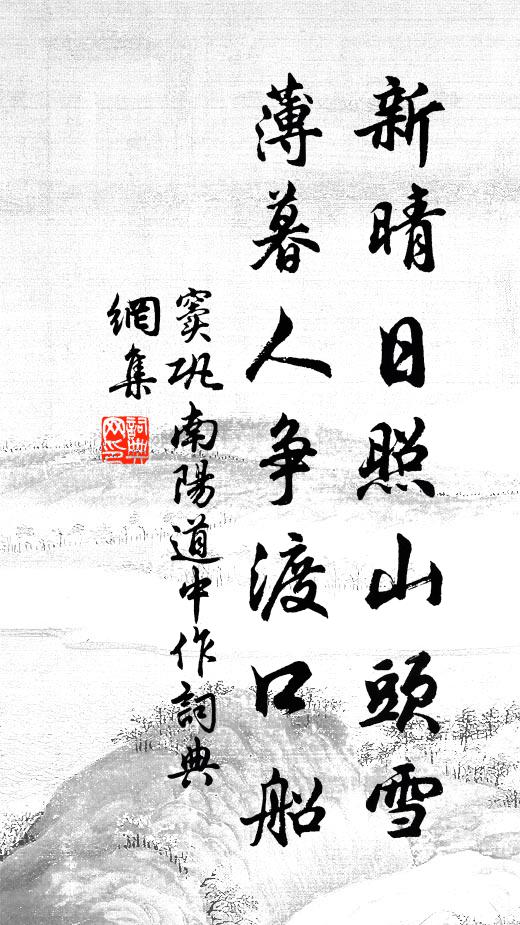 新晴日照山頭雪
薄暮人争渡口船
竇巩南陽道中作詞典
網集
詞典
网印